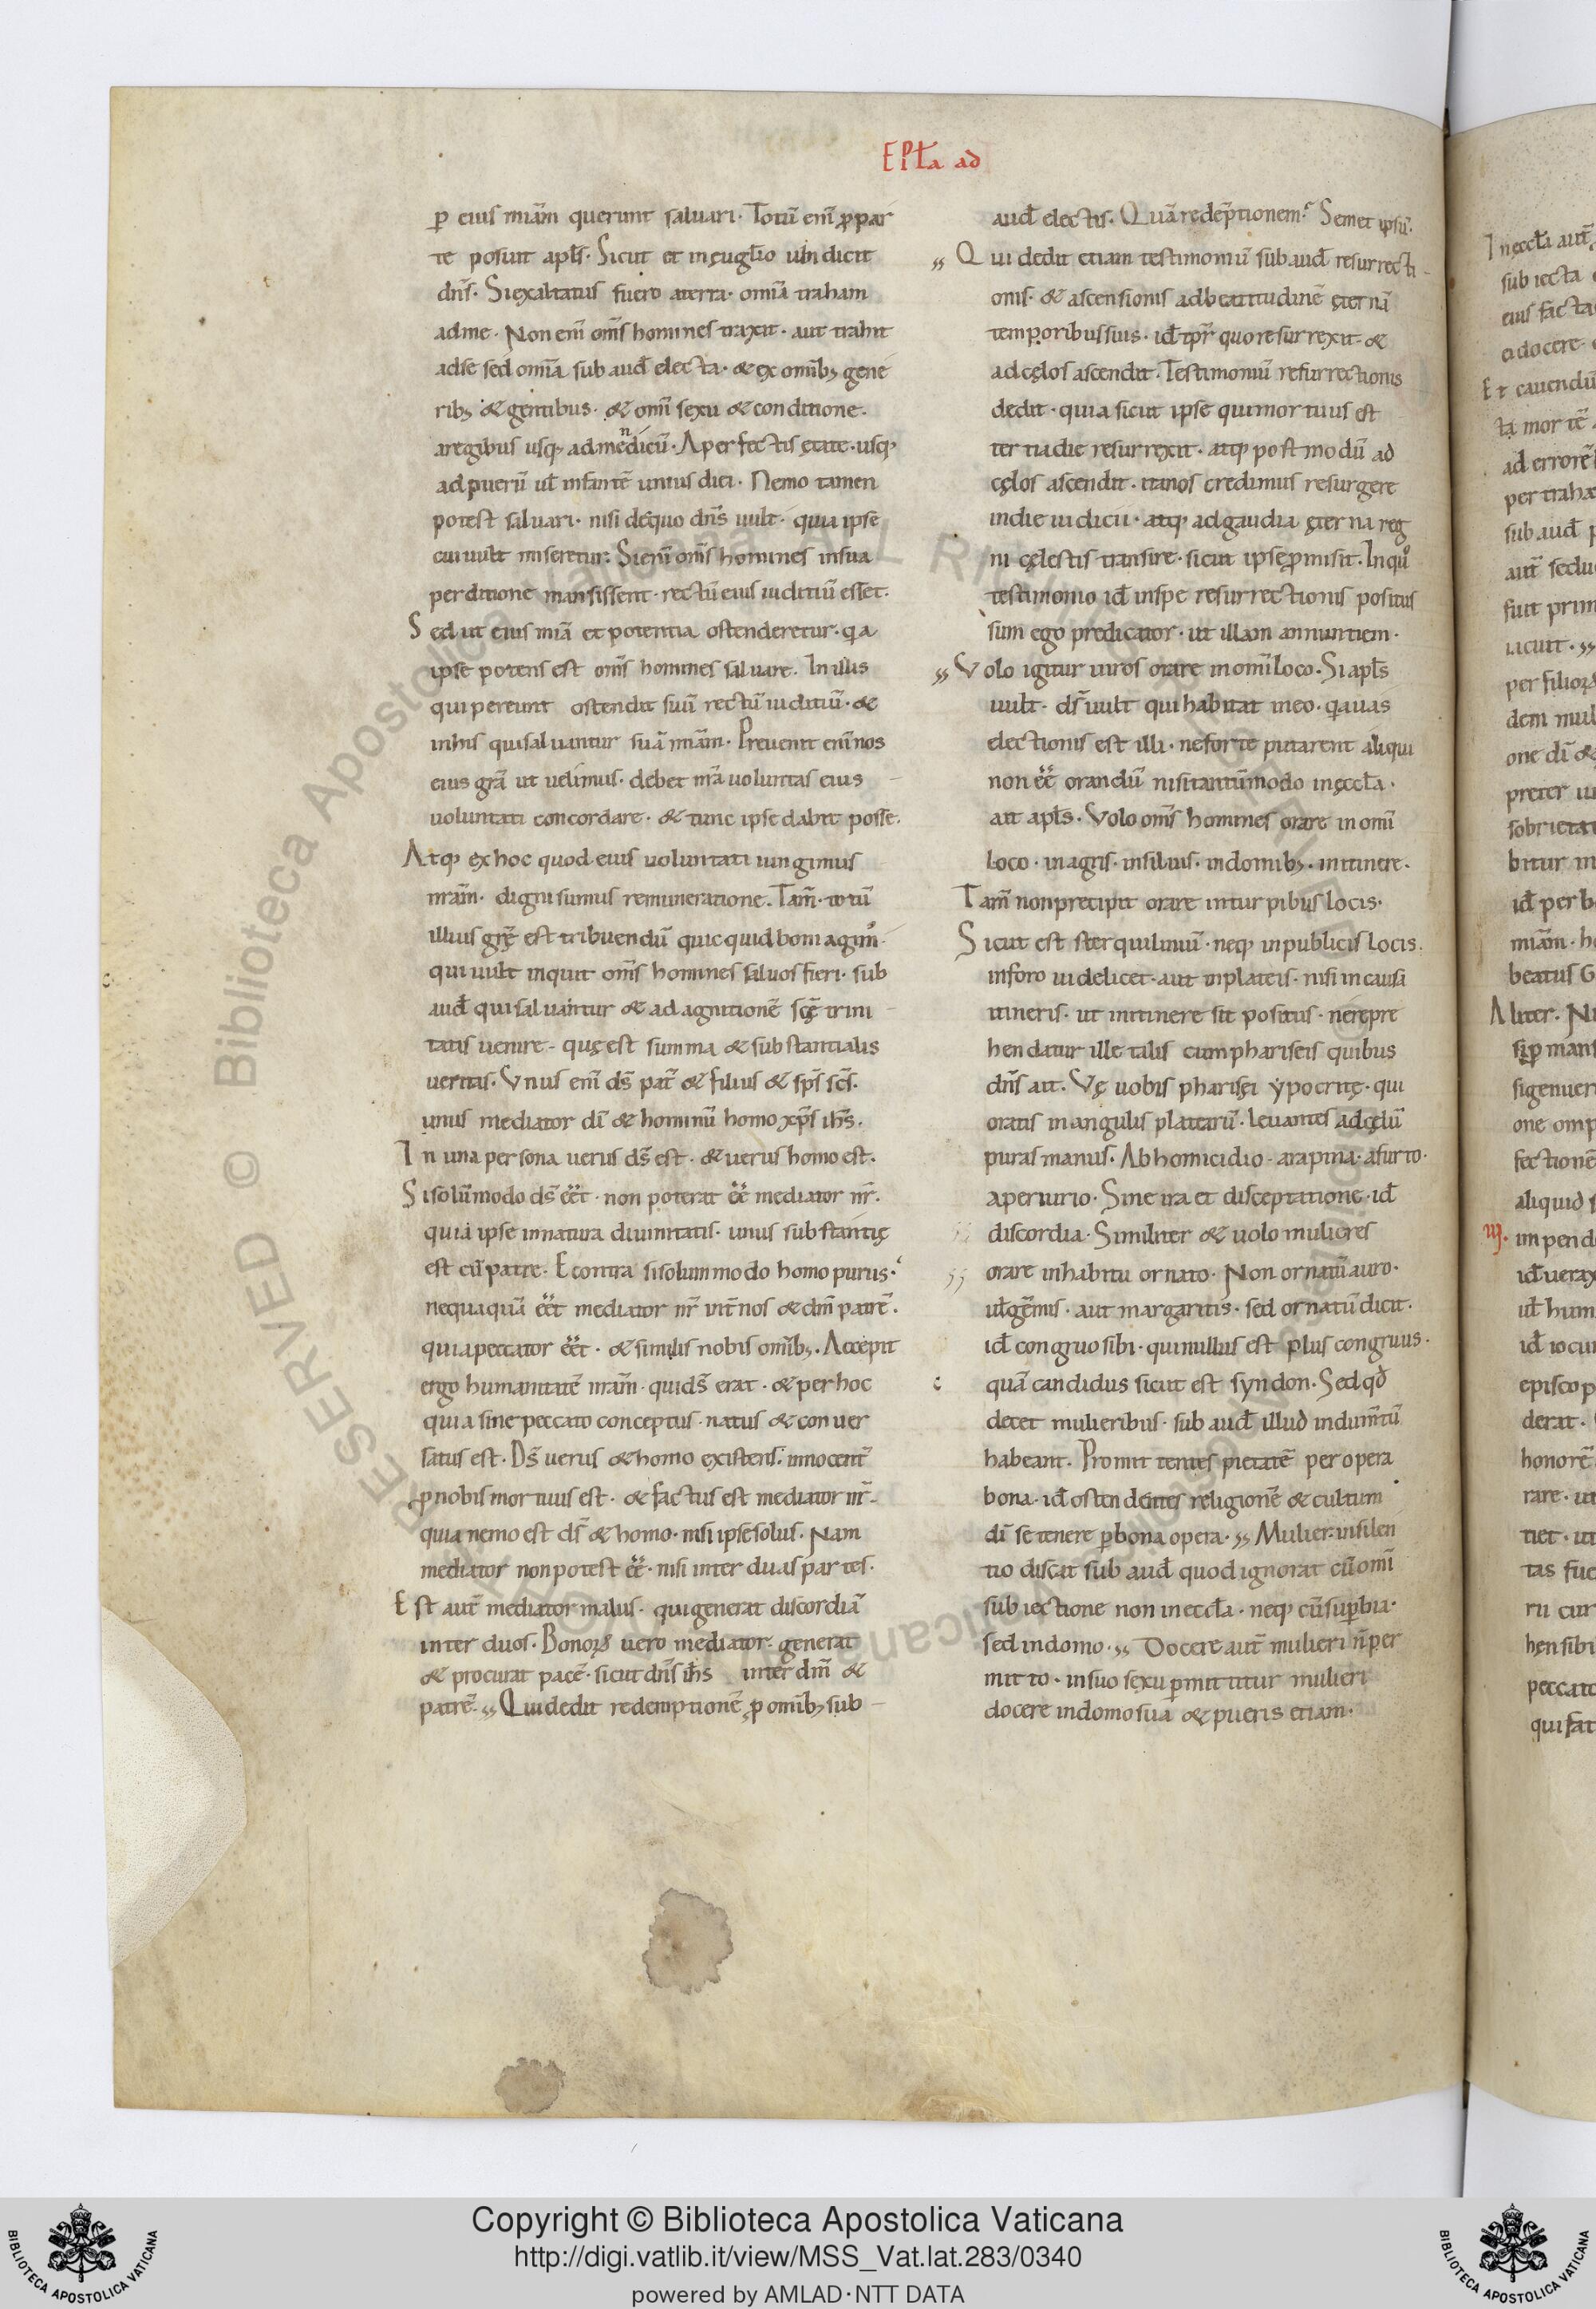 EPĪa ad
ꝑ eius miām querunt saluari. Totū enī ꝓpar
te posuit apłs. Sicut et inęuglio ubi dicit
dn̄s. Si exaltatus fuero aterra. omīa traham
adme. Non enī om̄s homines traxit. aut trahit
adse sed omīa sub aud̄ electa. & ex omnib; gene
rib; & gentibus. & omī sexu & conditione.
aregibus usq; ad mendicū. Aperfectis ętate. usq;
ad puerū uł infantē unius diei. Nemo tamen
potest saluari. nisi dequo dn̄s uult. quia ipse
cui uult miseretur. Si enī om̄s homines insua
perditione mansissent. rectū eius iuditiū esset.
Sed ut eius miā et potentia ostenderetur. qa
ipse potens est om̄s homines saluare. In illis
qui pereunt ostendit suū rectū iuditiū. &
inhis qui saluantur suā miām. Preuenit enī nos
eius gr̄a ut uelimus. debet nr̄a uoluntas eius
uoluntati concordare. & tunc ipse dabit posse.
Atq; ex hoc quod eius uoluntati iungimus
nrām. digni sumus remuneratione. Tam̄. totū
illius grę̄ est tribuendū quicquid boni agim᷒.
qui uult inquit om̄s homines saluos fieri. sub
aud̄ qui saluantur & ad agnitionē scę̄ trini
tatis uenire. quę est summa & substantialis
ueritas. Unus enī ds̄ pat̄ & filius & sp̄s sc̄s.
unus mediator dī & hominū homo xp̄s ih̄s.
In una persona uerus ds̄ est. & uerus homo est.
Si solūmodo ds̄ eēt. non poterat eē mediator nr̄.
quia ipse innatura diuinitatis. unius substantię
est cū patre. Econtra si solummodo homo purus.
nequaquā eēt mediator nr̄ int̄ nos & dm̄ patrē.
quia peccator eēt. & similis nobis omīb;. Accepit
ergo humanitatē nrām. qui ds̄ erat. & per hoc
quia sine peccato conceptus. natus & conuer
satus est. Ds̄ uerus & homo existens. innocent̄
ꝓ nobis mortuus est. & factus est mediator nr̄.
quia nemo est ds̄ & homo. nisi ipse solus. Nam
mediator non potest eē. nisi inter duas partes.
Est aut̄ mediator malus. qui generat discordiā
inter duos. Bonoꝝ uero mediator. generat
& procurat pacē. sicut dn̄s ih̄s inter dm̄ &
patrē. ,, Qui dedit redemptionē ꝓ omīb; sub
aud̄ electis. Quā redēptionem. Semet ipsū.
,, Qui dedit etiam testimoniū sub aud̄ resurrecti
onis. & ascensionis adbeatitudinē ęternā
temporibus suis. id̄ tpr̄ quo resurrexit. &
adcęlos ascendit. Testimoniū resurrectionis
dedit. quia sicut ipse qui mortuus est
tertia die resurrexit. atq; postmodū ad
cęlos ascendit. ita nos credimus resurgere
indie iudicii. atq; ad gaudia ęterna reg
ni cęlestis transire. sicut ipse ꝓmisit. In quo
testimonio id̄ inspe resurrectionis positus
sum ego predicator. ut illam annuntiem.
,, Volo igitur uiros orare in omī loco. Si apłs
uult. ds̄ uult qui habitat ineo. qa uas
electionis est illi. neforte putarent aliqui
non eē orandū nisi tantūmodo inęccła.
ait apłs. Volo om̄s homines orare in omī
loco. inagris. insiluis. indomib;. initinere.
Tam̄ non precipit orare inturpibus locis.
Sicut est sterquiliniū. neq; inpublicis locis.
inforo uidelicet. aut inplateis. nisi in causa
itineris. ut initinere sit positus. nerepre
hendatur ille talis cum phariseis quibus
dn̄s ait. Vę uobis pharisęi ypocritę. qui
oratis inangulis platearū. leuantes adcęlū
puras manus. Abhomicidio. arapina. afurto.
aperiurio. Sine ira et disceptatione. id̄
discordia. Similiter & uolo mulieres
,, orare inhabitu ornato. Non ornatū auro.
uł gēmis. aut margaritis. sed ornatū dicit.
id̄ congruo sibi. qui nullus est plus congruus.
quā candidus sicut est syndon. Sed qd̄
decet mulieribus. sub aud̄ illud indum̄tū
habeant. Promittentes pietatē per opera
bona. id̄ ostendentes religionē & cultum
dī se tenere ꝑ bona opera. ,, Mulier. insilen
tio discat sub aud̄ quod ignorat cū omī
subiectione non ineccła. neq; cū suꝑbia.
sed indomo. ,, Docere aut̄ mulieri n̄ per
mitto. insuo sexu ꝑmittitur mulieri
docere indomo sua & pueris etiam.
Copyright © Biblioteca Apostolica Vaticana
http://digi.vatlib.it/view/MSS_Vat.lat.283/0340
powered by AMLAD·NTT DATA